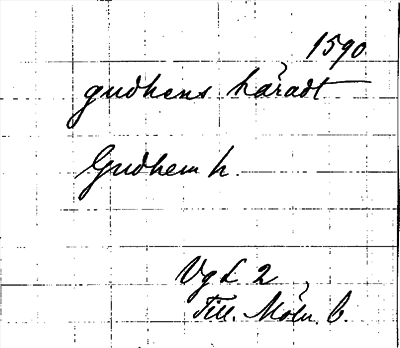 1590
gudhens håradt
Gudhem h.
Vg L 2
Till. Möln. C.